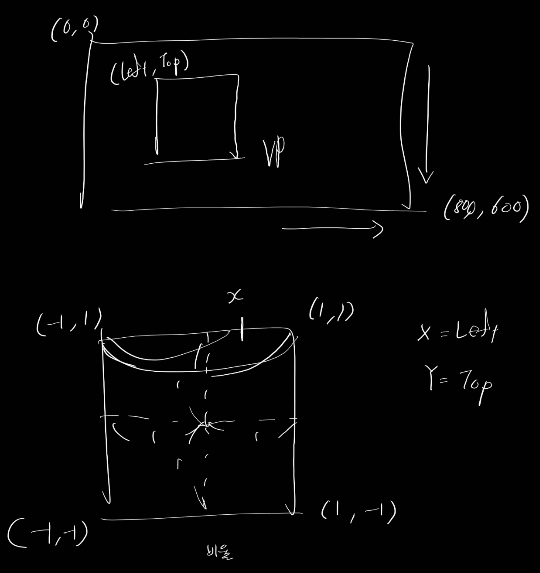 (0,0)
(Left, Top)
VP
(800, 600)
x
(-1, 1)
(1, 1)
X = Left
Y = Top
(-1, -1)
(1, -1)
비율